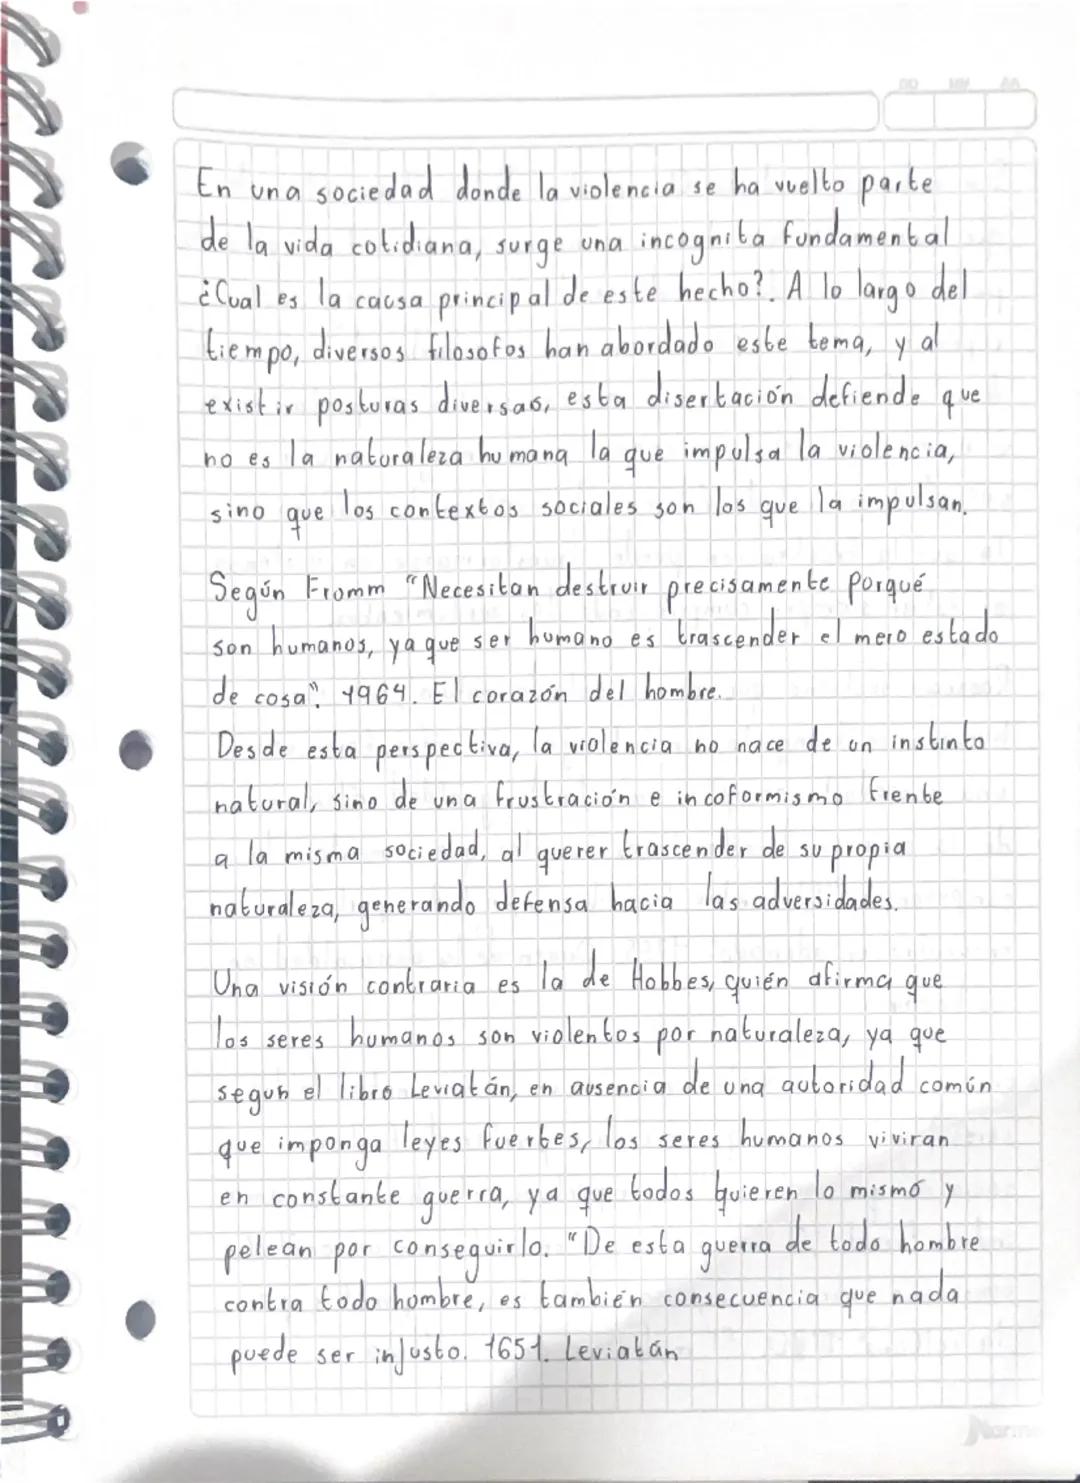 DD MM AA
En una sociedad donde la violencia se ha vuelto parte
de la vida cotidiana, surge una incognita fundamental
¿Cual es la causa principal de este hecho?. A lo largo del
tiempo, diversos filosofos han abordado este tema, y al
existir posturas diversas, esta disertación defiende que
no es la naturaleza humana la que impulsa la violencia,
sino que los contextos sociales son los que la impulsan.
Según Fromm "Necesitan destruir precisamente porqué
son humanos, ya que ser humano es trascender el mero estado
de cosa". 1964. El corazón del hombre.
Desde esta perspectiva, la violencia no nace de un instinto
natural, sino de una frustración e incoformismo frente
a la misma sociedad, al querer trascender de su propia
naturaleza, generando defensa hacia las adversidades.
Una visión contraria es la de Hobbes, quién afirma que
los seres humanos son violentos por naturaleza, ya que
segun el libro Leviatán, en ausencia de una autoridad común
que imponga leyes fuertes, los seres humanos viviran
en constante guerra, ya que todos quieren lo mismo y
pelean por conseguirlo. "De esta guerra de todo hombre
contra todo hombre, es también consecuencia que nada
puede ser injusto. 1651. Leviatán
Norma